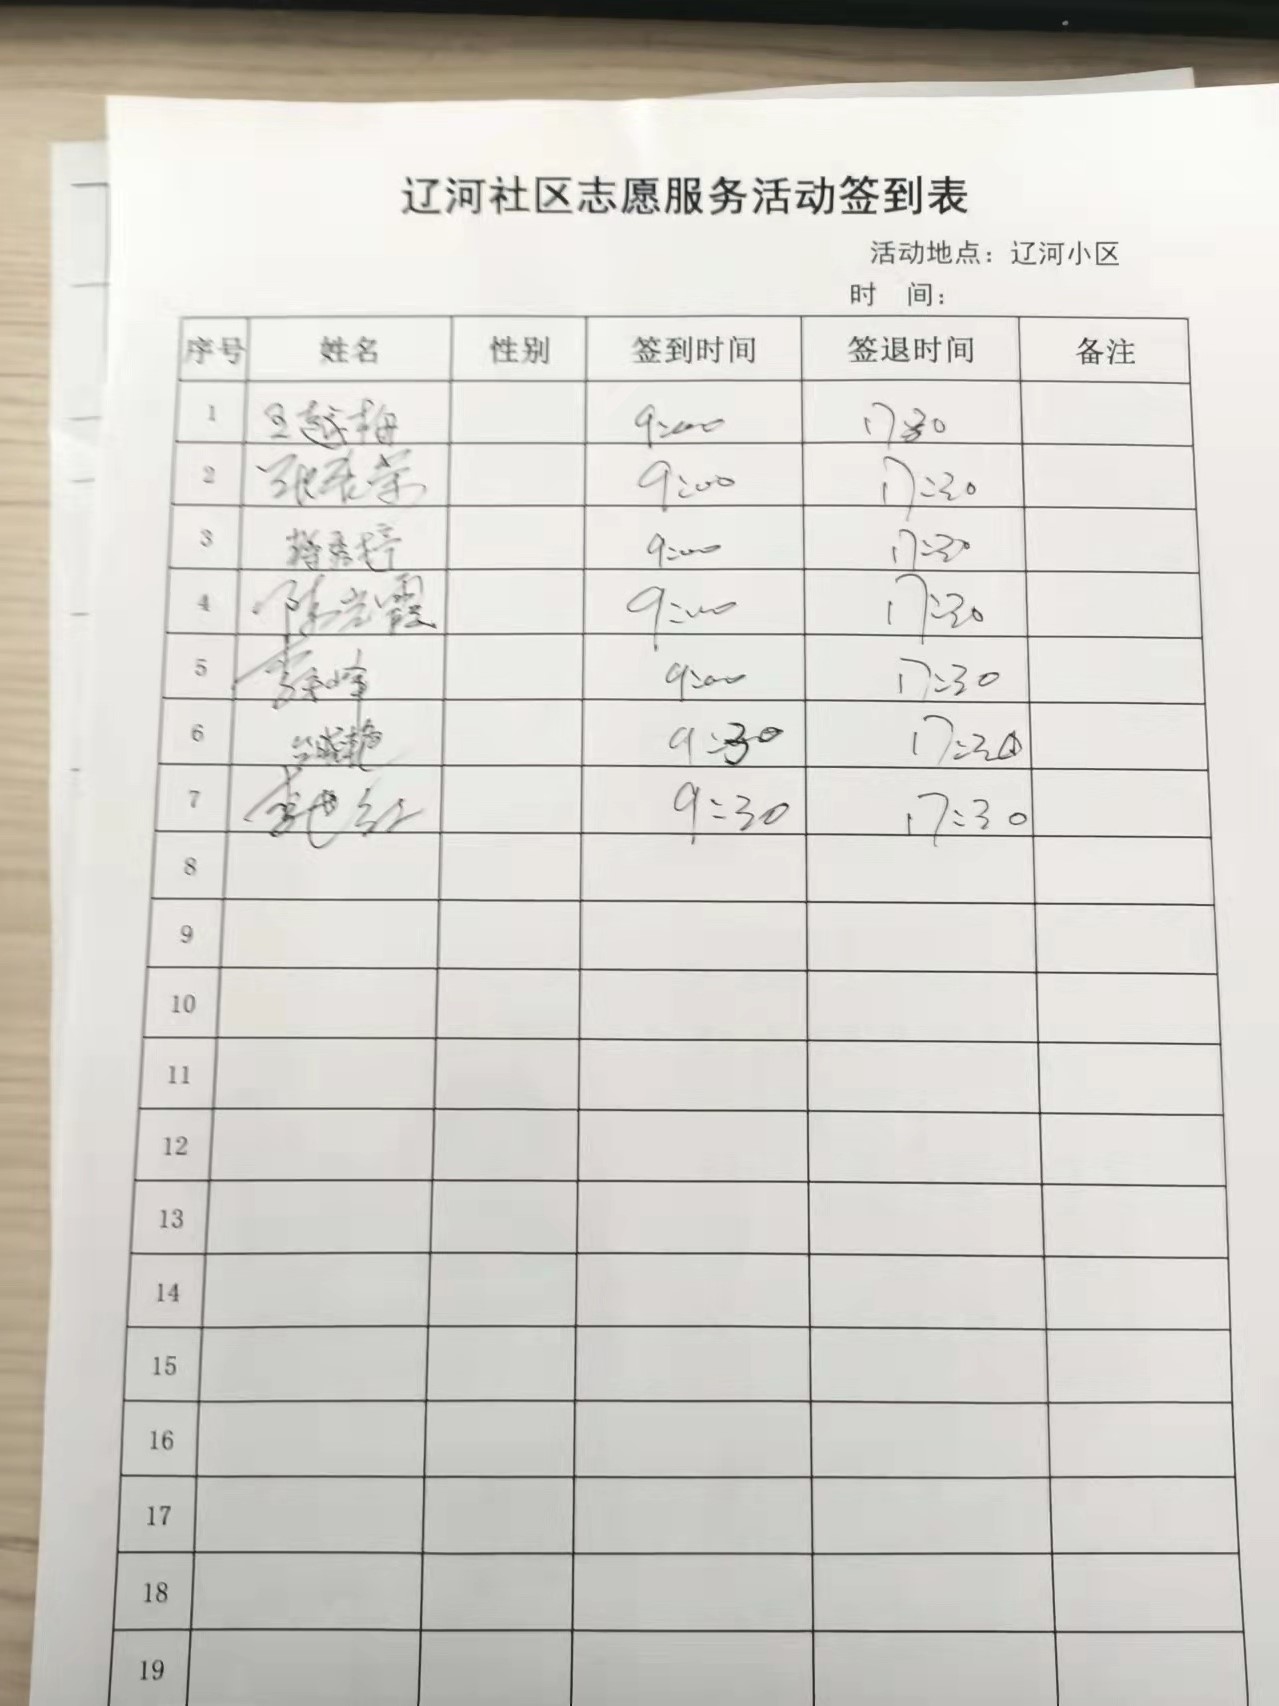 辽河社区志愿服务活动签到表
活动地点：辽河小区
时 间：
序号 姓名 性别 签到时间 签退时间 备注
1 王越梅 9:00 17:30
2 9:00 17:30
3 9:00 17:30
4 陈光霞 9:00 17:30
5 9:00 17:30
6 9:30 17:30
7 9:30 17:30
8
9
10
11
12
13
14
15
16
17
18
19